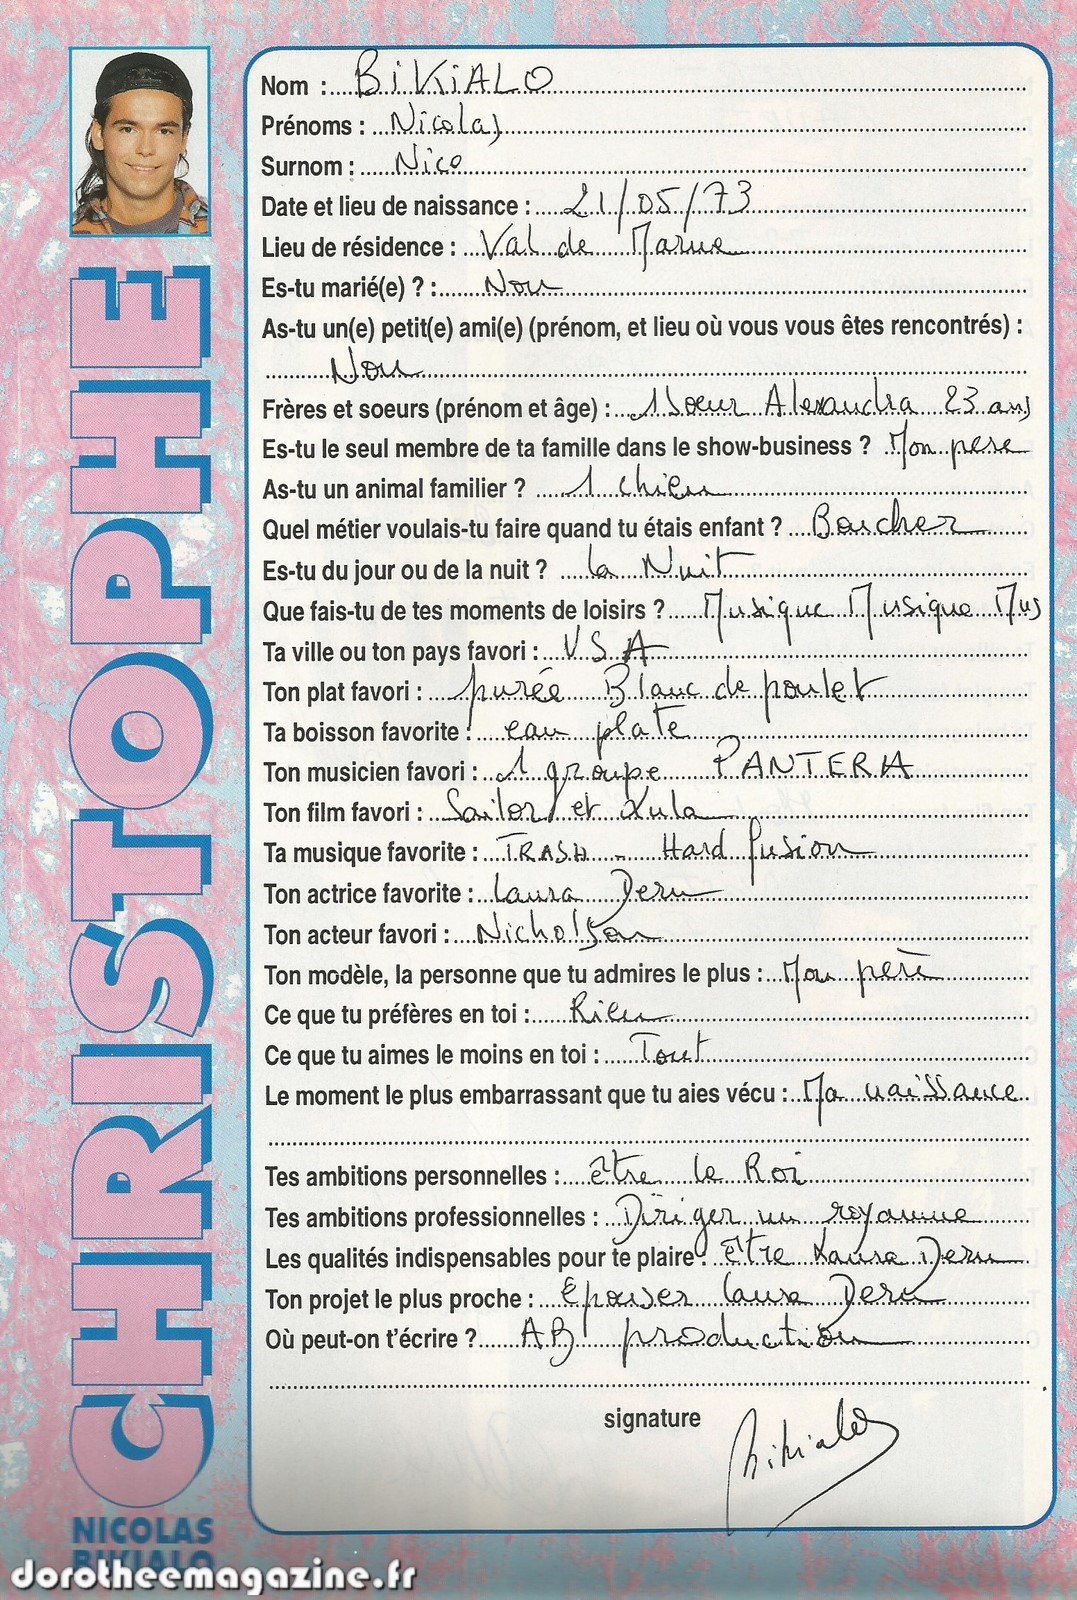 Nom : BiKiALO
Prénoms : Nicolas
Surnom : Nico
Date et lieu de naissance : 21/05/73
Lieu de résidence : Val de Marne
Es-tu marié(e) ? : Non
As-tu un(e) petit(e) ami(e) (prénom, et lieu où vous vous êtes rencontrés) :
Non
Frères et soeurs (prénom et âge) : 1 Soeur Alexandra 23 ans
Es-tu le seul membre de ta famille dans le show-business ? Mon pere
As-tu un animal familier ? 1 chien
Quel métier voulais-tu faire quand tu étais enfant ? Boucher
Es-tu du jour ou de la nuit ? la Nuit
Que fais-tu de tes moments de loisirs ? Musique Musique Mus
Ta ville ou ton pays favori : USA
Ton plat favori : purée Blanc de poulet
Ta boisson favorite : eau plate
Ton musicien favori : 1 groupe PANTERA
Ton film favori : Sailor et Lula
Ta musique favorite : TRASH - Hard fusion
Ton actrice favorite : Laura Dern
Ton acteur favori : Nicholson
Ton modèle, la personne que tu admires le plus : Mon père
Ce que tu préfères en toi : Rien
Ce que tu aimes le moins en toi : Tout
Le moment le plus embarrassant que tu aies vécu : Ma naissance
Tes ambitions personnelles : être le Roi
Tes ambitions professionnelles : Diriger un royaume
Les qualités indispensables pour te plaire : être Laura Dern
Ton projet le plus proche : Epouser Laura Dern
Où peut-on t'écrire ? AB production
signature Bikialo
CHRISTOPHE
NICOLAS
BIKIALO
dorotheemagazine.fr